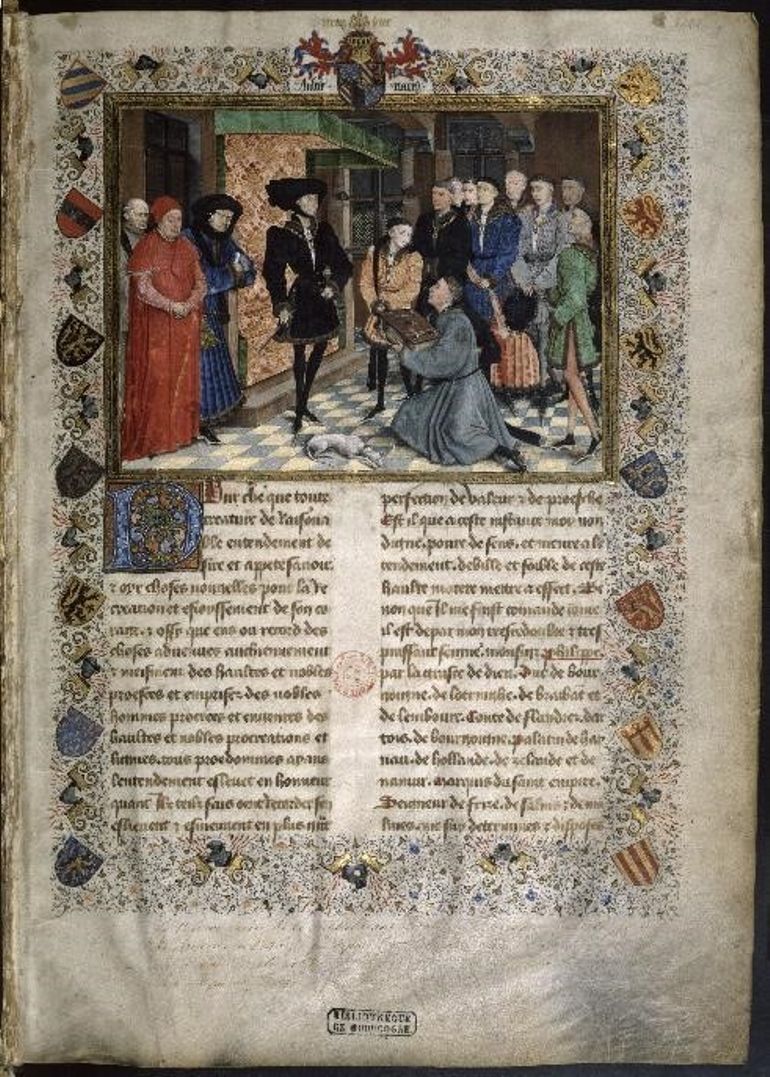 Autre
narey
Pour che que toute
creature de Raisona
ble entendement de
sire et appete sauoir
& oyr choses nouuelles pour la re
creation et esioissement de son co
raige. & ossy que ens ou record des
choses aduenues anchienement
& meismement des haultes et nobles
proesses et emprises des nobles
hommes procrees et
haultes et nobles procreations et
lignies. tous proedommes ayans
lentendement esleuet en honneur
quant Ilz telz fais oent recorder sen
esliesent & esmeuuent en plus
perfection de valeur & de proesche
Est il que a ceste instance moy non
digne. poure de sens. et meure a le
tendement. debille et foible de ceste
haulte matere mettre a effect. Se
non que Il me fuist comande come
il est de par mon tresredoubte & tres
puissant seigneur. monseigneur phelippe.
par la grasse de dieu. Duc de bour
gongne. de lotringhe. de brabant et
de lembourc. Conte de flandres. dar
tois. de bourgongne. palatin de hay
nau. de hollande. de zelande et de
namur. marquis du saint empire.
Seigneur de frize. de salins & de ma
lines. me suy determines & disposes
BIBLIOTHEQUE
DE BOURGOGNE